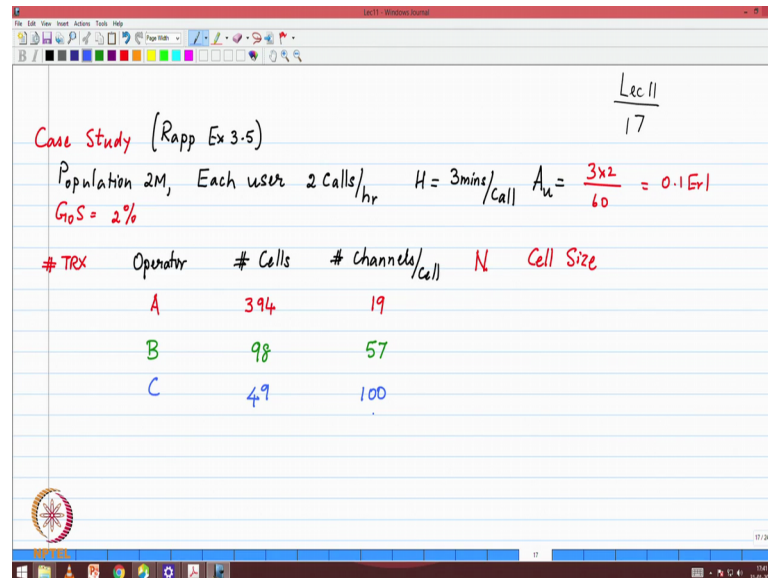 Lec11 - Windows Journal
File Edit View Insert Actions Tools Help
Page Width
B I
Lec 11
17
Case Study (Rapp Ex 3.5)
Population 2M, Each user 2 Calls/hr H = 3mins/call Au = 3x2/60 = 0.1 Erl
GoS = 2%
# TRX Operator # Cells # Channels/cell N Cell Size
A 394 19
B 98 57
C 49 100
NPTEL
17
17:41